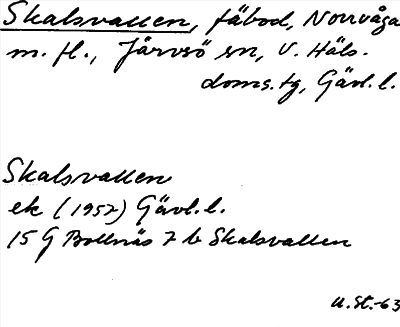 Skalsvallen, fäbod, Norrvåga
m. fl., Järvsö sn, V. Häls.
doms.tg, Gävl. l.
Skalsvallen
ek (1957) Gävl. l.
15 G Bollnäs 7 b Skalsvallen
U. St. -63